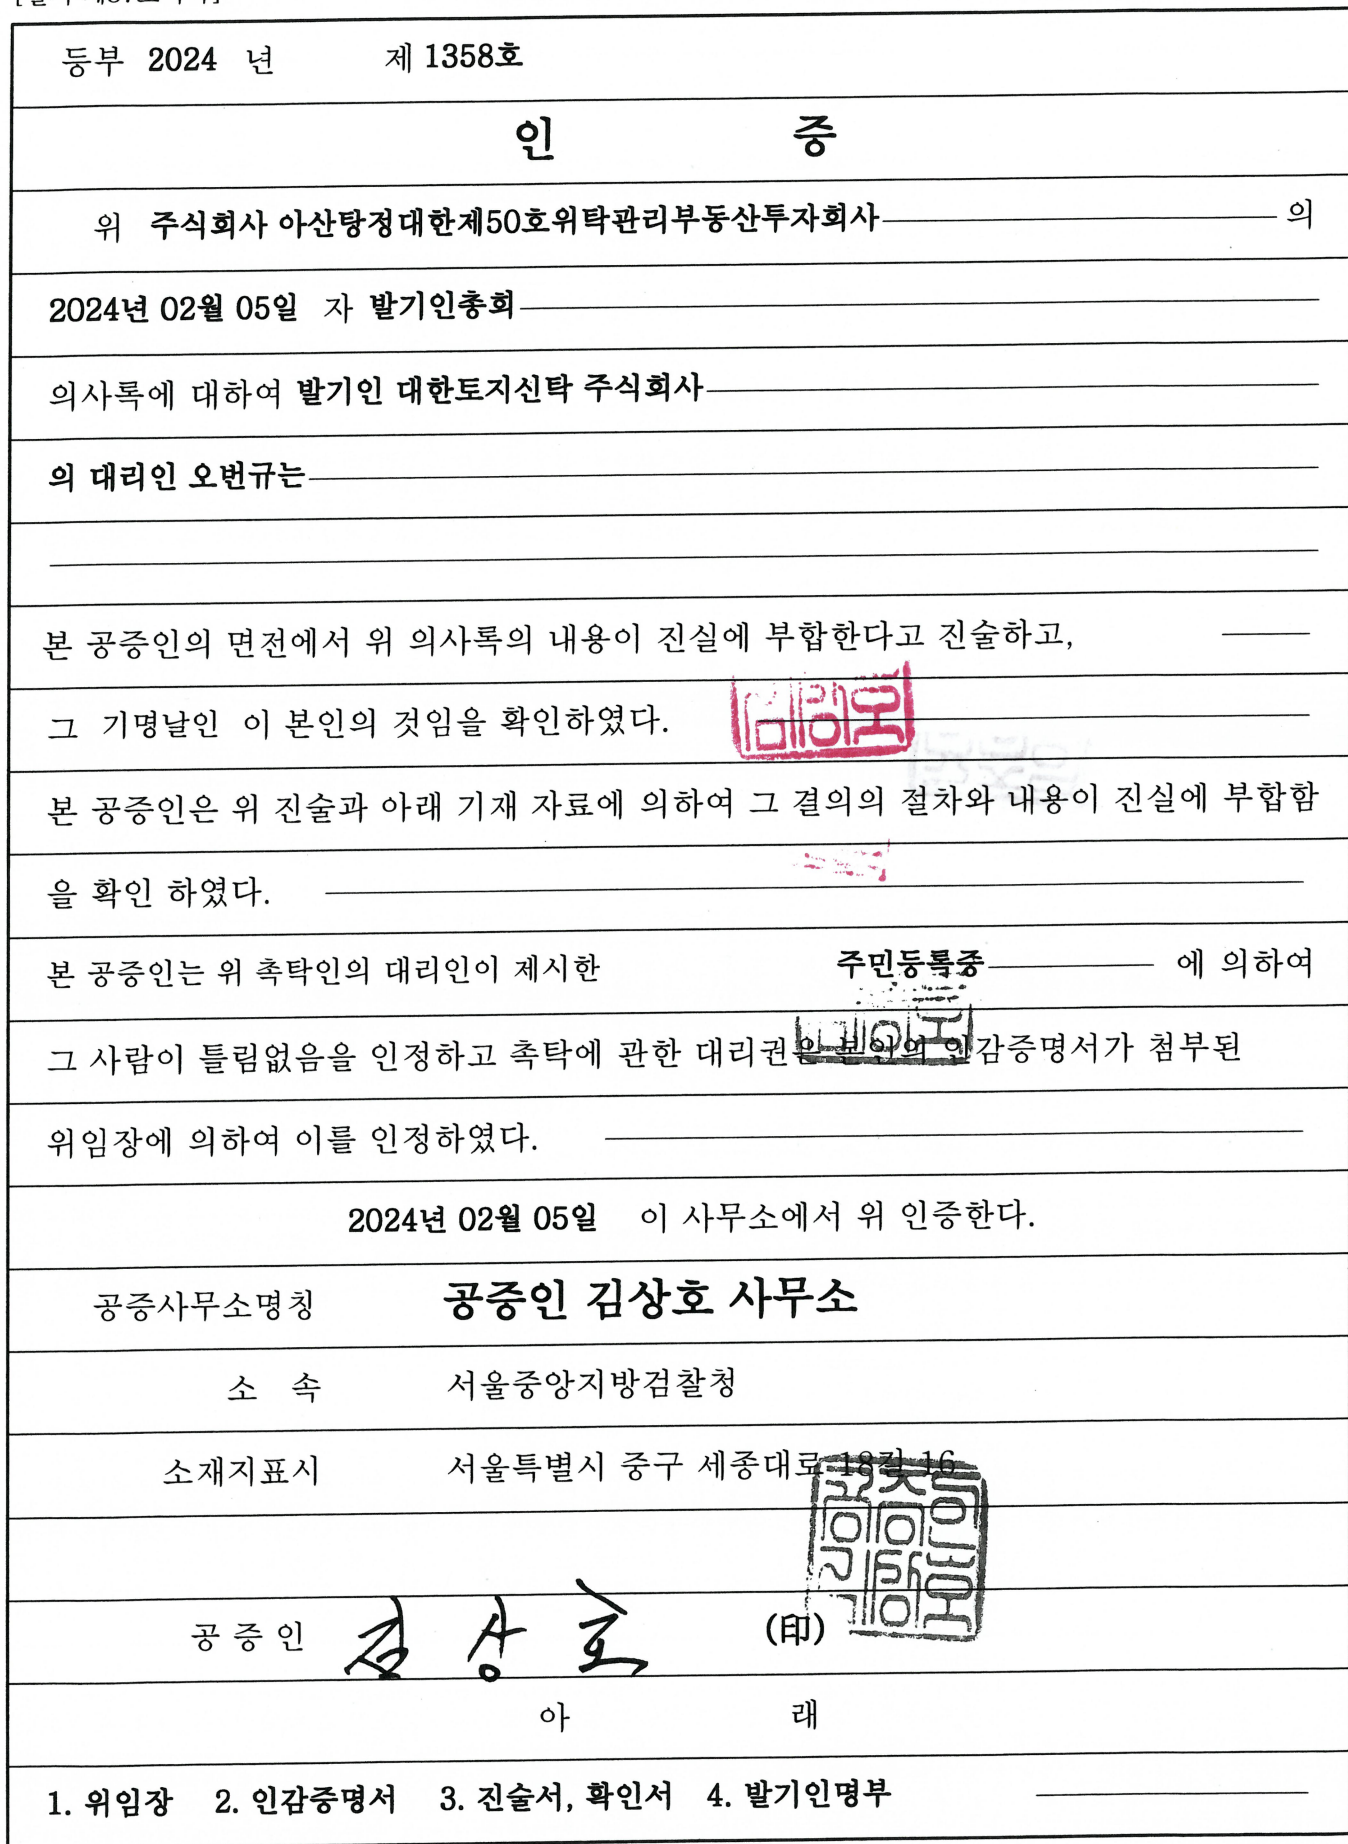 등부 2024 년 제 1358호
인 증
위 주식회사 아산탕정대한제50호위탁관리부동산투자회사 의
2024년 02월 05일 자 발기인총회
의사록에 대하여 발기인 대한토지신탁 주식회사
의 대리인 오번규는
본 공증인의 면전에서 위 의사록의 내용이 진실에 부합한다고 진술하고,
그 기명날인 이 본인의 것임을 확인하였다.
본 공증인은 위 진술과 아래 기재 자료에 의하여 그 결의의 절차와 내용이 진실에 부합함
을 확인 하였다.
본 공증인는 위 촉탁인의 대리인이 제시한 주민등록증 에 의하여
그 사람이 틀림없음을 인정하고 촉탁에 관한 대리권은 본인의 인감증명서가 첨부된
위임장에 의하여 이를 인정하였다.
2024년 02월 05일 이 사무소에서 위 인증한다.
공증사무소명칭 공증인 김상호 사무소
소 속 서울중앙지방검찰청
소재지표시 서울특별시 중구 세종대로 18길 16
공 증 인 김 상 호 (印)
아 래
1. 위임장 2. 인감증명서 3. 진술서, 확인서 4. 발기인명부